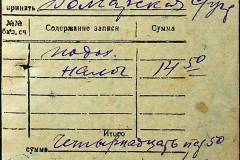 принять Домарская Фур
№№ бал. сч. Содержание записи Сумма
подох.
налог 14 50
Итого
сумма Четырнадцать руб 50